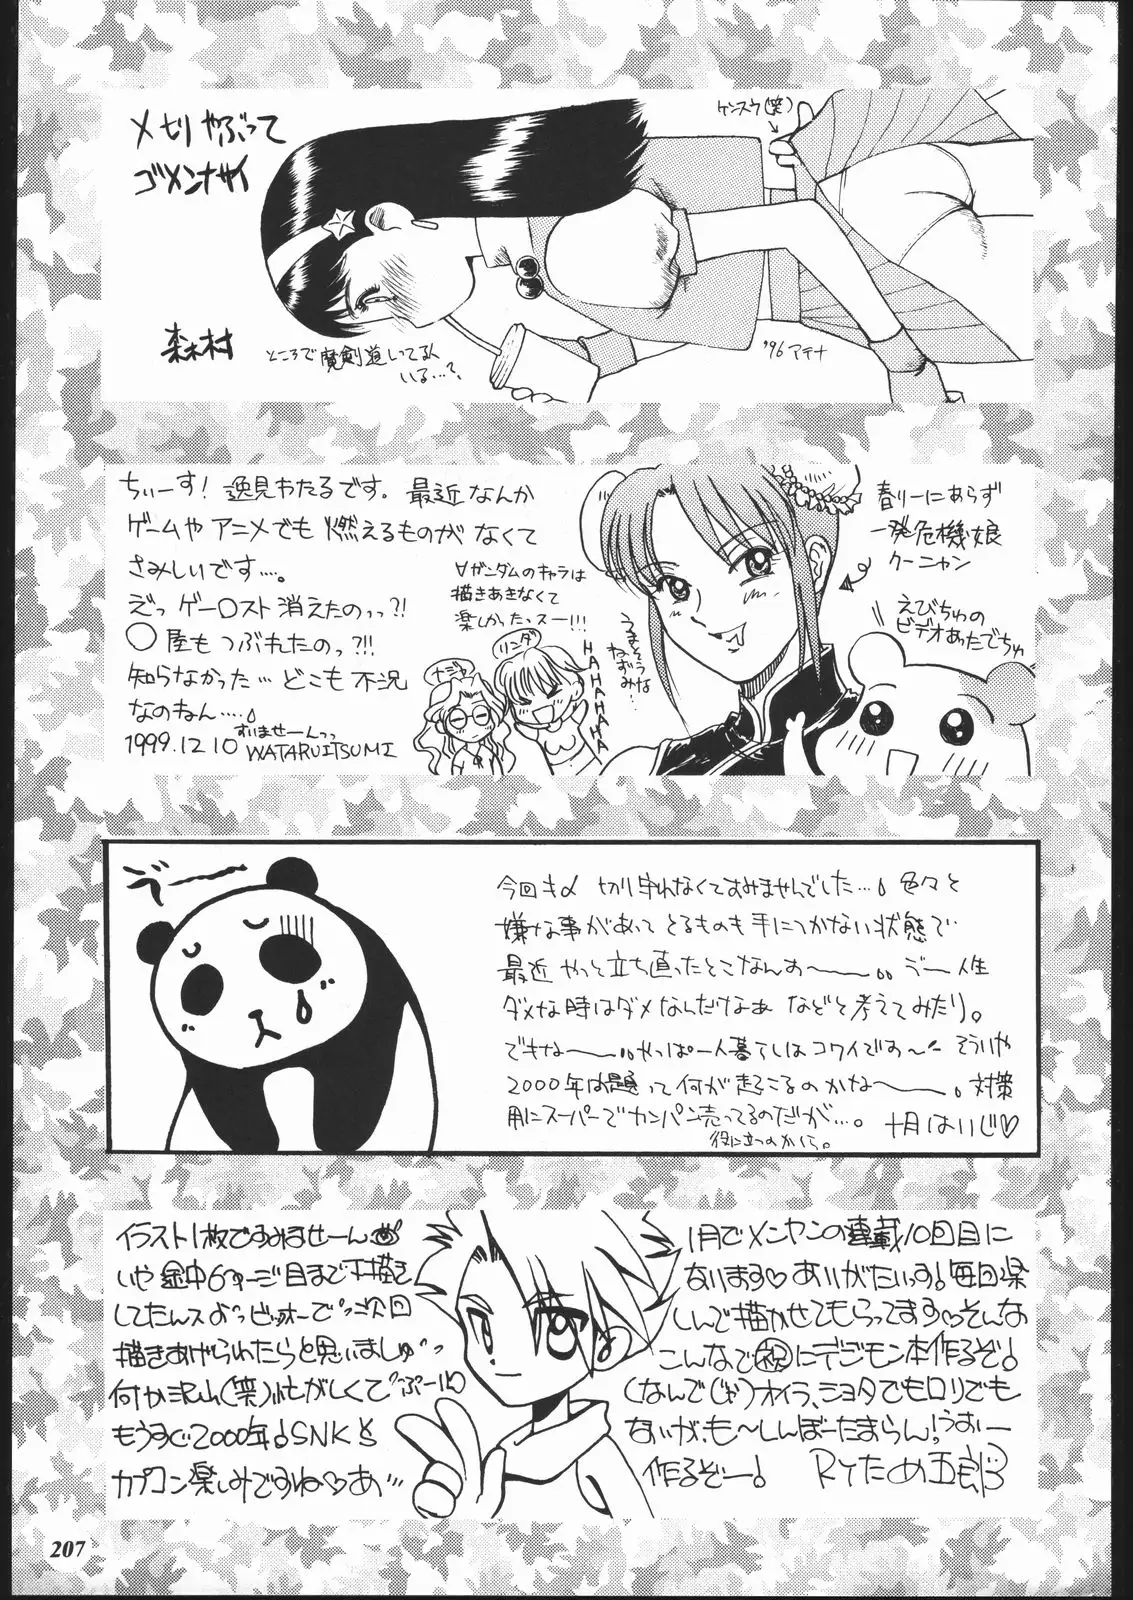 メ切りやぶって
ゴメンナサイ
ケンスウ(笑)
森村
ところで魔剣道しってる人
いる…?
'96 アテナ
ちぃーす! 逸見わたるです。最近なんか
ゲームやアニメでも燃えるものがなくて
さみしいです…。
えっゲーロスト消えたのっっ?!
○屋もつぶれたの?!!
知らなかった…どこも不況
なのねん…。
すいませーんっっ
1999.12.10 WATARU ITSUMI
∀ガンダムのキャラは
描きあきなくて
楽しかったっスー!!!
リンダ
HAHAHAHAHA
うまそうな
ねずみ…!
春リーにあらず
一発危機娘
クーニャン
えびちゅの
ビデオあったでちゅ
でーー
今回も〆切り守れなくてすみませんでした…。色々と
嫌な事があって とるものも手につかない状態で
最近やっと立ち直ったとこなんす〜〜。でー人生
ダメな時はダメなんだなぁ などと考えてみたり。
でもな〜〜。やっぱ一人暮らしはコワイです〜 そういや
2000年問題って何が起こるのかな〜〜。対策
用にスーパーでカンパン売ってるのだが…。十月はいじ♡
役に立つのかって。
イラスト1枚ですみませーん
いや 途中6ページ目まで下描き
してたんスよ
次回
描きあげられたらと思いましゅ
何か沢山(笑)忙がしくて
もうすぐ2000年♪SNKと
カプコン楽しみですね♡あ…
1月でメンヤンの連載10回目に
なります♡ありがたいっす!毎回楽
しんで描かせてもらってます♡そんな
こんなで㊗にデジモン本作るぞ!
(なんでじゃ)オイラ、ショタでもロリでも
ないが、も〜しんぼーたまらん!うおぉー
作るぞー!
RYため五郎
207